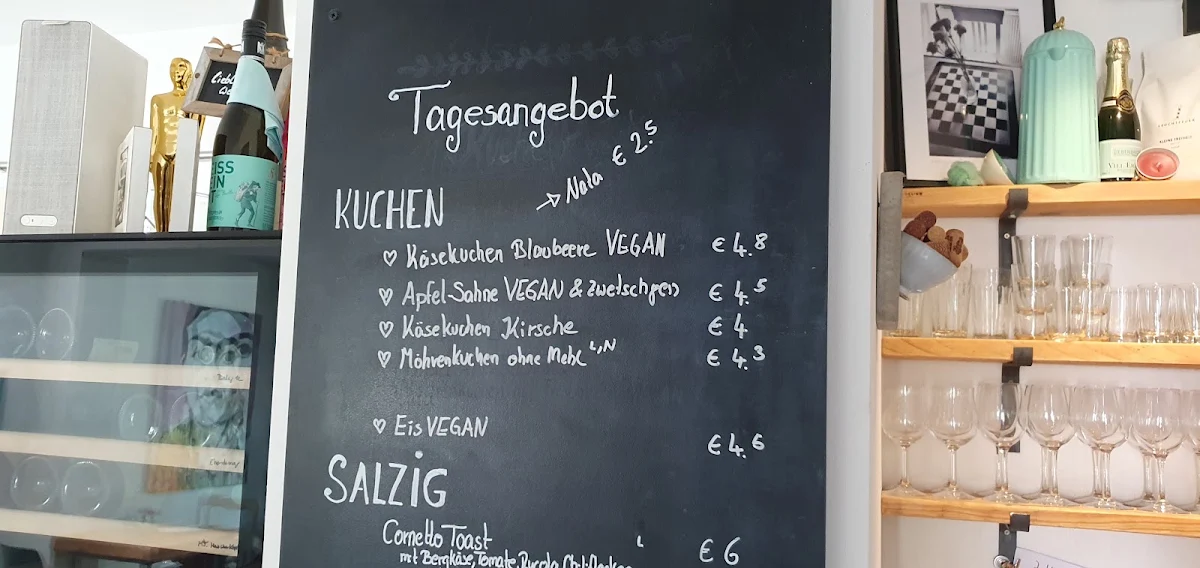 Tagesangebot
Nata € 2.5
KUCHEN
♡ Käsekuchen Blaubeere VEGAN € 4.8
♡ Apfel-Sahne VEGAN & Zwetschgen € 4.5
♡ Käsekuchen Kirsche € 4
♡ Möhrenkuchen ohne Mehl L,N € 4.3
♡ Eis VEGAN € 4.6
SALZIG
Cornetto Toast L € 6
mit Bergkäse, Tomate, Rucola
Chardonnay